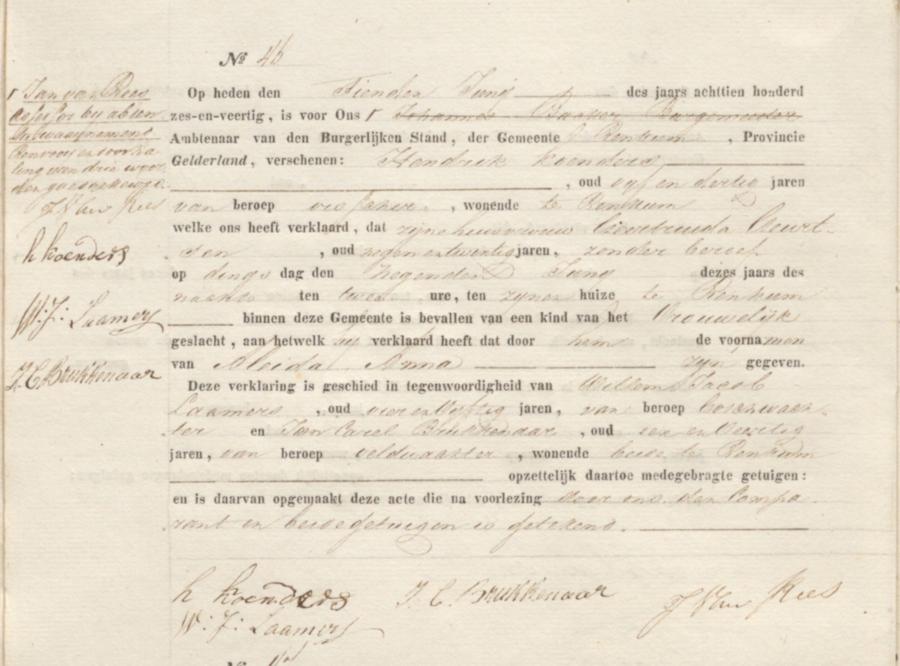 Nº 46
Jan van Rees
Assessor bij absen
Op heden den Tienden Junij des jaars achttien honderd
zes-en-veertig, is voor Ons Johannes Bakker Burgemeester
Ambtenaar van den Burgerlijken Stand, der Gemeente Renkum, Provincie
Gelderland, verschenen: Hendrik Koenders
, oud vyf en dertig jaren
van beroep , wonende te Renkum
welke ons heeft verklaard, dat zyne huisvrouw Geertruida Geurt-
sen , oud negen en twintig jaren, zonder beroep
op dings dag den Negenden Juny dezes jaars des
nachts ten twee ure, ten zynen huize te Renkum
binnen deze Gemeente is bevallen van een kind van het Vrouwelijk
geslacht, aan hetwelk hy verklaard heeft dat door hem de voornamen
van Aleida Anna zyn gegeven.
Deze verklaring is geschied in tegenwoordigheid van Willem Jacob
Laamers , oud vier en vyftig jaren, van beroep boschwach-
ter en Jan Carel Brukkenaar , oud een en veertig
jaren, van beroep veldwagter, wonende beide te Renkum
opzettelijk daartoe medegebragte getuigen:
en is daarvan opgemaakt deze acte die na voorlezing door ons den Compa
rant en beide getuigen is getekend.
van drie woor
den goedgekeurd
J Van Rees
h Koenders
W: J: Laamers
J. C. Brukkenaar
h Koenders J. C. Brukkenaar J Van Rees
W: J: Laamers
Nº